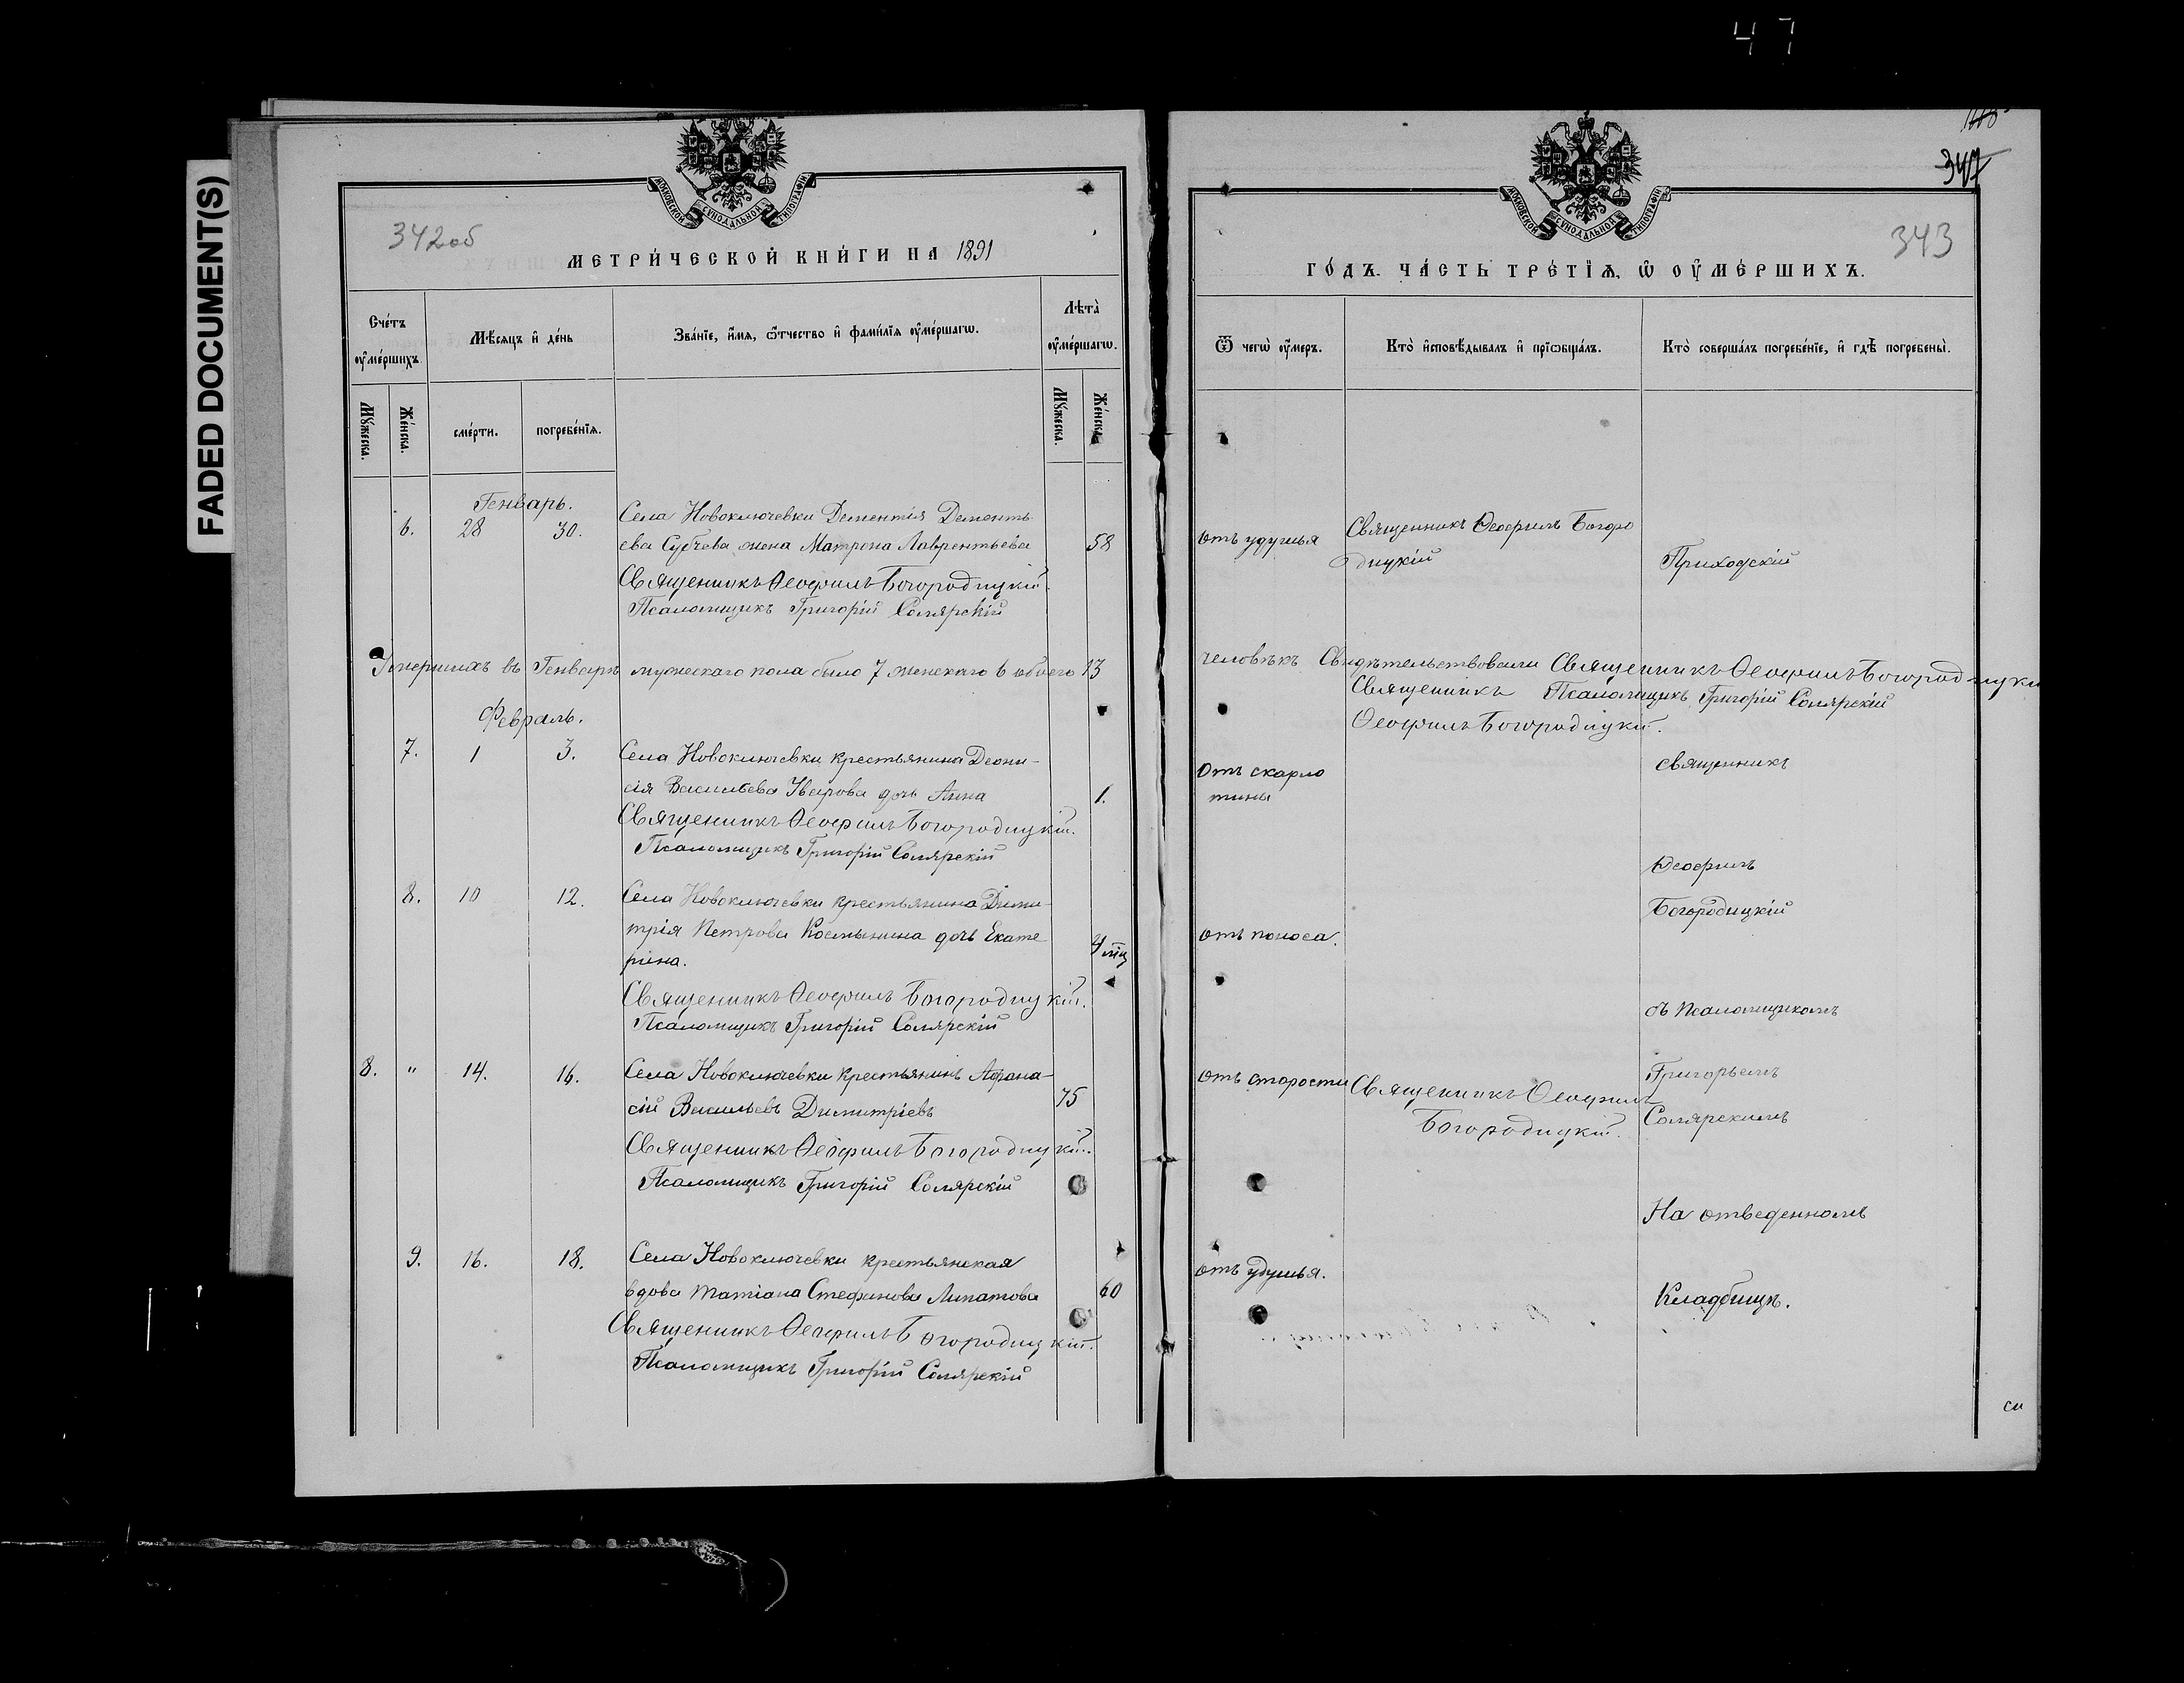 47
FADED DOCUMENT(S)
МОСКОВСКОЙ СѴНОДАЛЬНОЙ ТИПОГРАФІИ
342об
МЕТРИ́ЧЕСКОЙ КНИ́ГИ НА 1891
Сче́тъ ᲂу҆ме́ршихъ.
Мѣ́сяцъ и҆ де́нь
Зва́нїе, и҆́мя, ѻ҆́тчество и҆ фами́лїя ᲂу҆ме́ршагѡ.
Лѣта̀ ᲂу҆ме́ршагѡ.
Мꙋ́жеска.
Же́нска.
сме́рти.
погребе́нїѧ.
Мꙋ́жеска.
Же́нска.
Генварь.
6. 28 30. Села Новоключевки Дементія Дементь
ева Субчева жена Матрона Лаврентьева 58
Священникъ Ѳеофилъ Богородицкій
Псаломщикъ Григорій Солярскій
Умершихъ въ Генварѣ мужескаго пола было 7 женскаго 6 обоего 13
Февраль.
7. 1 3. Села Новоключевки крестьянина Діони-
сія Васильева Уварова дочь Анна 1.
Священникъ Ѳеофилъ Богородицкій.
Псаломщикъ Григорій Солярскій
8. 10 12. Села Новоключевки крестьянина Дими-
трія Петрова Косынкина дочь Екате
рина. 4 мц
Священникъ Ѳеофилъ Богородицкій.
Псаломщикъ Григорій Солярскій
8. " 14. 16. Села Новоключевки крестьянинъ Афана-
сій Васильевъ Димитріевъ 75
Священникъ Ѳеофилъ Богородицкій.
Псаломщикъ Григорій Солярскій
9. 16. 18. Села Новоключевки крестьянская
вдова Татіана Стефанова Липатова 60
Священникъ Ѳеофилъ Богородицкій.
Псаломщикъ Григорій Солярскій
347
МОСКОВСКОЙ СѴНОДАЛЬНОЙ ТИПОГРАФІИ
343
ГО́ДЪ. ЧА́СТЬ ТРЕ́ТЇѦ, Ѡ҆ ОУ҆МЕ́РШИХЪ.
Ѿ чегѡ̀ ᲂу҆́меръ.
Кто̀ и҆сповѣ́дывалъ и҆ прїѡбща́лъ.
Кто̀ соверша́лъ погребе́нїе, и҆ гдѣ̀ погребены̀.
отъ удушья
Священникъ Ѳеофилъ Богоро
дицкій
Приходскій
человѣкъ Свидѣтельствовали Священникъ Ѳеофилъ Богородицкій
Священникъ Псаломщикъ Григорій Солярскій
Ѳеофилъ Богородицкій.
Отъ скарла
тины
священникъ
Ѳеофилъ
Богородицкій
отъ поноса.
съ псаломщикомъ
отъ старости
Священникъ Ѳеофилъ
Богородицкій.
Григорьемъ
Солярскимъ
На отведенномъ
отъ удушья.
Кладбищѣ.
см